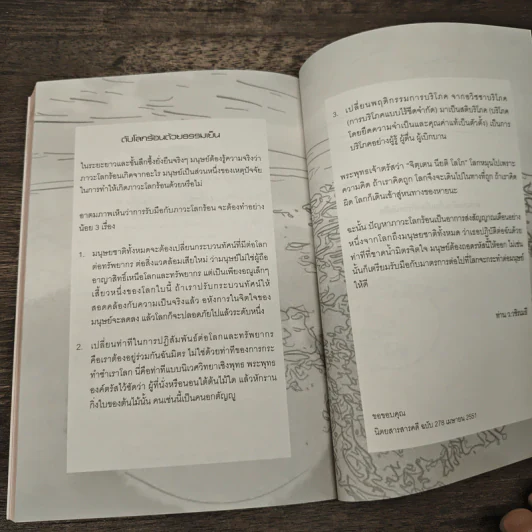 ดับโลกร้อนด้วยธรรมเย็น
ในระยะยาวและขั้นลึกซึ้งยั่งยืนจริงๆ มนุษย์ต้องรู้ความจริงว่า
ภาวะโลกร้อนเกิดจากอะไร มนุษย์เป็นส่วนหนึ่งของเหตุปัจจัย
ในการทำให้เกิดภาวะโลกร้อนด้วยหรือไม่
อาตมภาพเห็นว่าการรับมือกับภาวะโลกร้อน จะต้องทำอย่าง
น้อย 3 เรื่อง
1. มนุษยชาติทั้งหมดจะต้องเปลี่ยนกระบวนทัศน์ที่มีต่อโลก
ต่อทรัพยากร ต่อสิ่งแวดล้อมเสียใหม่ ว่ามนุษย์ไม่ใช่ผู้ถือ
อาญาสิทธิ์เหนือโลกและทรัพยากร แต่เป็นเพียงองุเล็กๆ
เสี้ยวหนึ่งของโลกใบนี้ ถ้าเราปรับกระบวนทัศน์ให้
สอดคล้องกับความเป็นจริงแล้ว อหังการในจิตใจของ
มนุษย์จะลดลง แล้วโลกก็จะปลอดภัยไปแล้วระดับหนึ่ง
2. เปลี่ยนท่าทีในการปฏิสัมพันธ์ต่อโลกและทรัพยากร
คือเราต้องอยู่ร่วมกันฉันมิตร ไม่ใช่ด้วยท่าทีของการกระ
ทำชำเราโลก นี่คือท่าทีแบบนิเวศวิทยาเชิงพุทธ พระพุทธ
องค์ตรัสไว้ชัดว่า ผู้ที่นั่งหรือนอนใต้ต้นไม้ใด แล้วหักราน
กิ่งใบของต้นไม้นั้น คนเช่นนี้เป็นคนอกตัญญู
3. เปลี่ยนพฤติกรรมการบริโภค จากอวิชชาบริโภค
(การบริโภคแบบไร้ขีดจำกัด) มาเป็นสติบริโภค (บริโภค
โดยยึดความจำเป็นและคุณค่าแท้เป็นตัวตั้ง) เป็นการ
บริโภคอย่างผู้รู้ ผู้ตื่น ผู้เบิกบาน
พระพุทธเจ้าตรัสว่า "จิตฺเตน นียติ โลโก" โลกหมุนไปเพราะ
ความคิด ถ้าเราคิดถูก โลกจึงจะเดินไปในทางที่ถูก ถ้าเราคิด
ผิด โลกก็เดินเข้าสู่หนทางของหายนะ
ฉะนั้น ปัญหาภาวะโลกร้อนเป็นอาการส่งสัญญาณเตือนอย่าง
หนึ่งจากโลกถึงมนุษยชาติทั้งหมด ว่าเธอปฏิบัติต่อฉันด้วย
ท่าทีที่ขาดน้ำมิตรจิตใจ มนุษย์ต้องถอดรหัสนี้ให้ออก ไม่เช่น
นั้นก็เตรียมรับมือกับมาตรการต่อไปที่โลกจะกระทำต่อมนุษย์
ให้ดี
ท่าน ว.วชิรเมธี
ขอขอบคุณ
นิตยสารสารคดี ฉบับ 278 เมษายน 2551